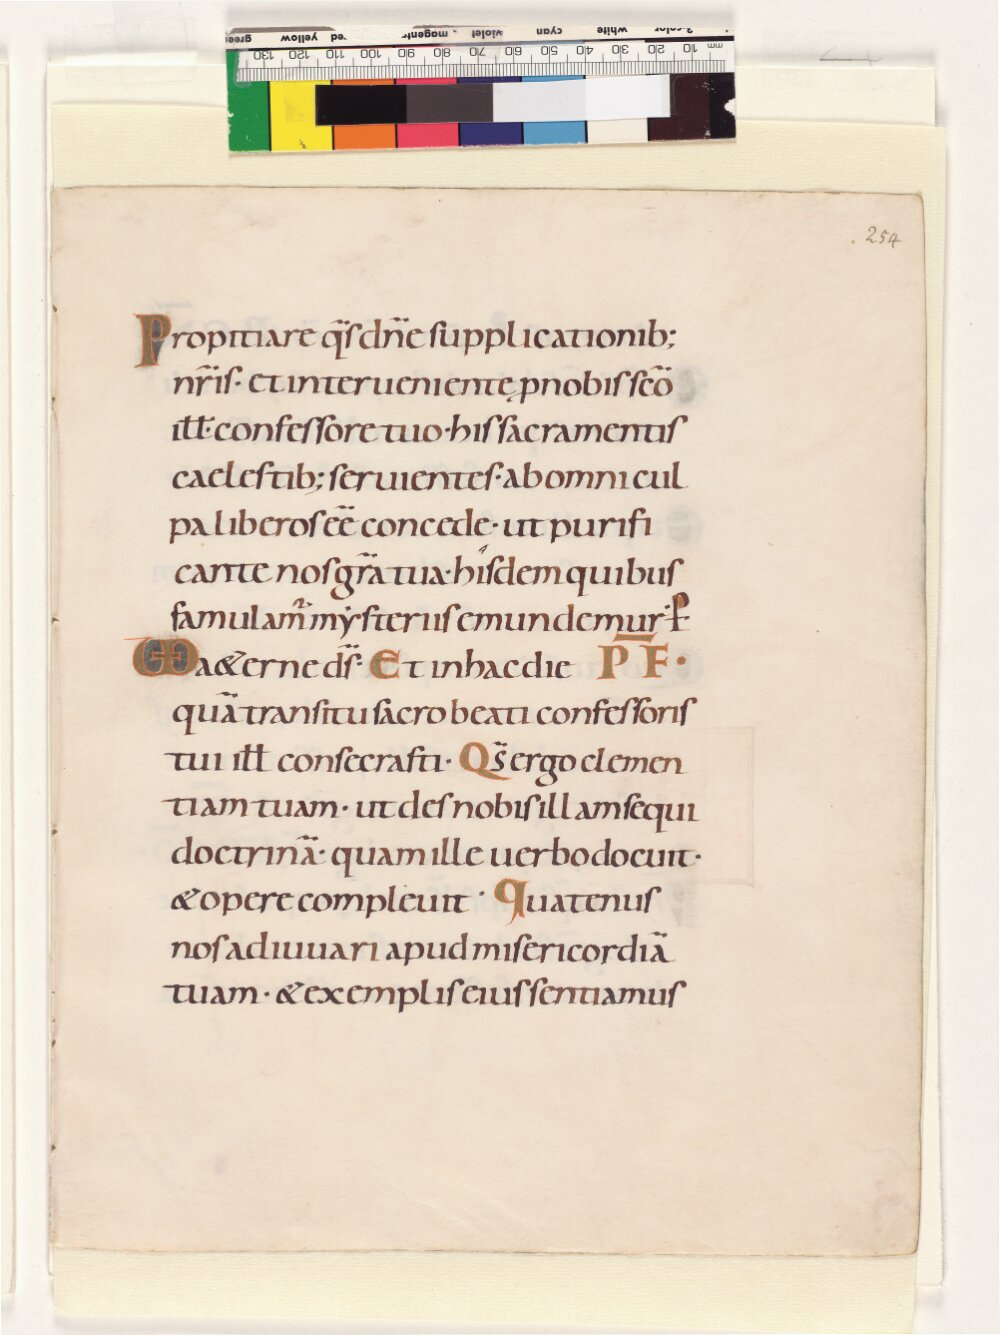 green yellow red magenta violet cyan white 3-color
130 120 110 100 90 80 70 60 50 40 30 20 10 mm
254
Propitiare q̄s dn̄e supplicationib;
nr̄is· et interueniente p nobis sc̄o
ill̄· confessore tuo· his sacramentis
caelestib; seruientes· ab omni cul
pa liberos eē concede· ut purifi
cante nos gr̄a tua· hisdem quibus
famulam̄ mẏsteriis emundemur· P̄
VD aeterne ds̄· Et in hac die P̄F·
quā transitu sacro beati confessoris
tui ill̄ consecrasti· Qs̄ ergo clemen
tiam tuam· ut des nobis illam sequi
doctrinā· quam ille uerbo docuit·
& opere compleuit· Quatenus
nos adiuuari apud misericordiā
tuam· & exemplis eius sentiamus